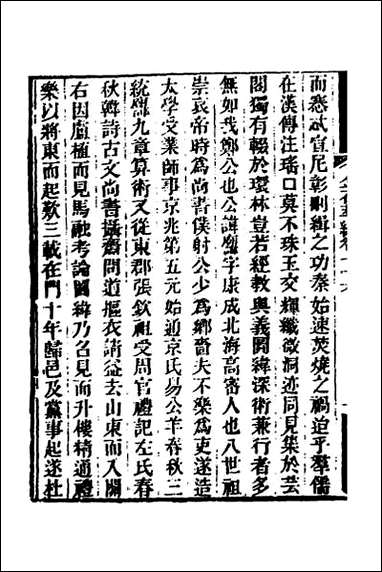 而悉弌宣尼彰刪緝之功秦始速焚燒之禍迨乎羣儒
在漢傳注瑤口莫不珠玉交輝纖微洞迹同見集於芸
閣獨有輟於環林豈若經敎奧義圖緯深術兼行者多
無如我鄭公也公諱字康成北海高密人也八世祖
崇哀帝時爲尚書僕射公少爲鄉嗇夫不樂爲吏遂造
太學受業師事京兆第五元始通京氏易公羊春秋三
統厤九章算術又從東郡張欽祖受周官禮記左氏春
秋韓詩古文尚書攝齋問道摳衣請益去山東而入關
右因盧植而見馬融考論圖緯乃召見而升樓精通禮
樂以將東而起歎三載在門十年歸邑及黨事起遂杜